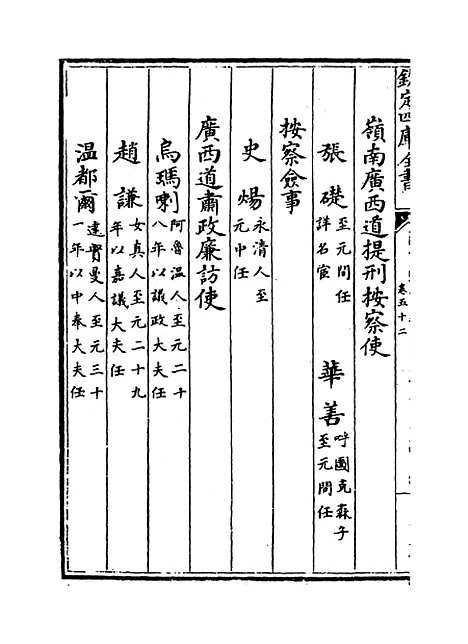 欽定四庫全書
卷五十二
嶺南廣西道提刑按察使
張礎至元間任詳名宦　華善呼圖克森子至元間任
按察僉事
史煬永清人至元中任
廣西道肅政廉訪使
烏瑪喇阿魯溫人至元二十八年以議政大夫任
趙謙女真人至元二十九年以嘉議大夫任
溫都爾達實曼人至元三十一年以中奉大夫任